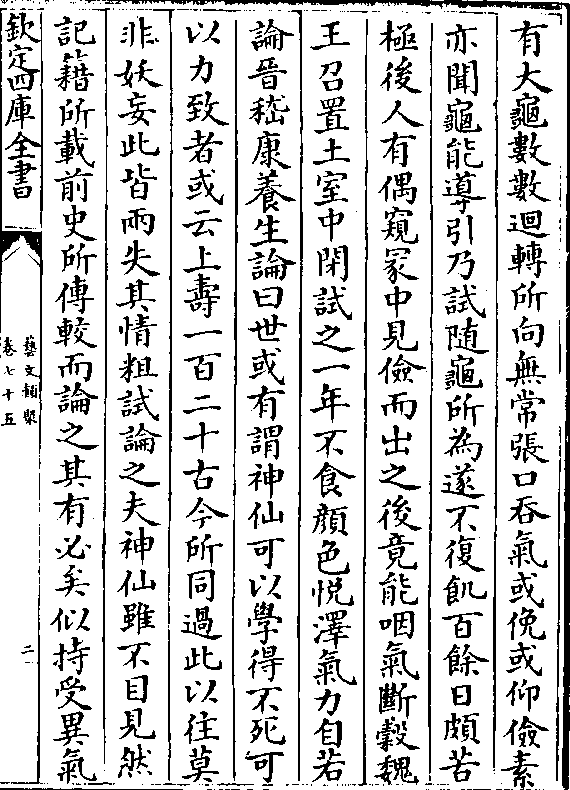 有大龜數數迴轉所向無常張口吞氣或俛或仰儉素
亦聞龜能導引乃試随龜所為遂不復飢百餘日頗苦
極後人有偶窺冢中見儉而出之後竟能咽氣斷糓魏
王召置土室中閉試之一年不食顔色悦澤氣力自若
論晉嵇康養生論曰世或有謂神仙可以學得不死可
以力致者或云上壽一百二十古今所同過此以往莫
非妖妄此皆兩失其情粗試論之夫神仙雖不目見然
記籍所載前史所傳較而論之其有必矣似持受異氣
欽定四庫全書
藝文類聚
卷七十五
二